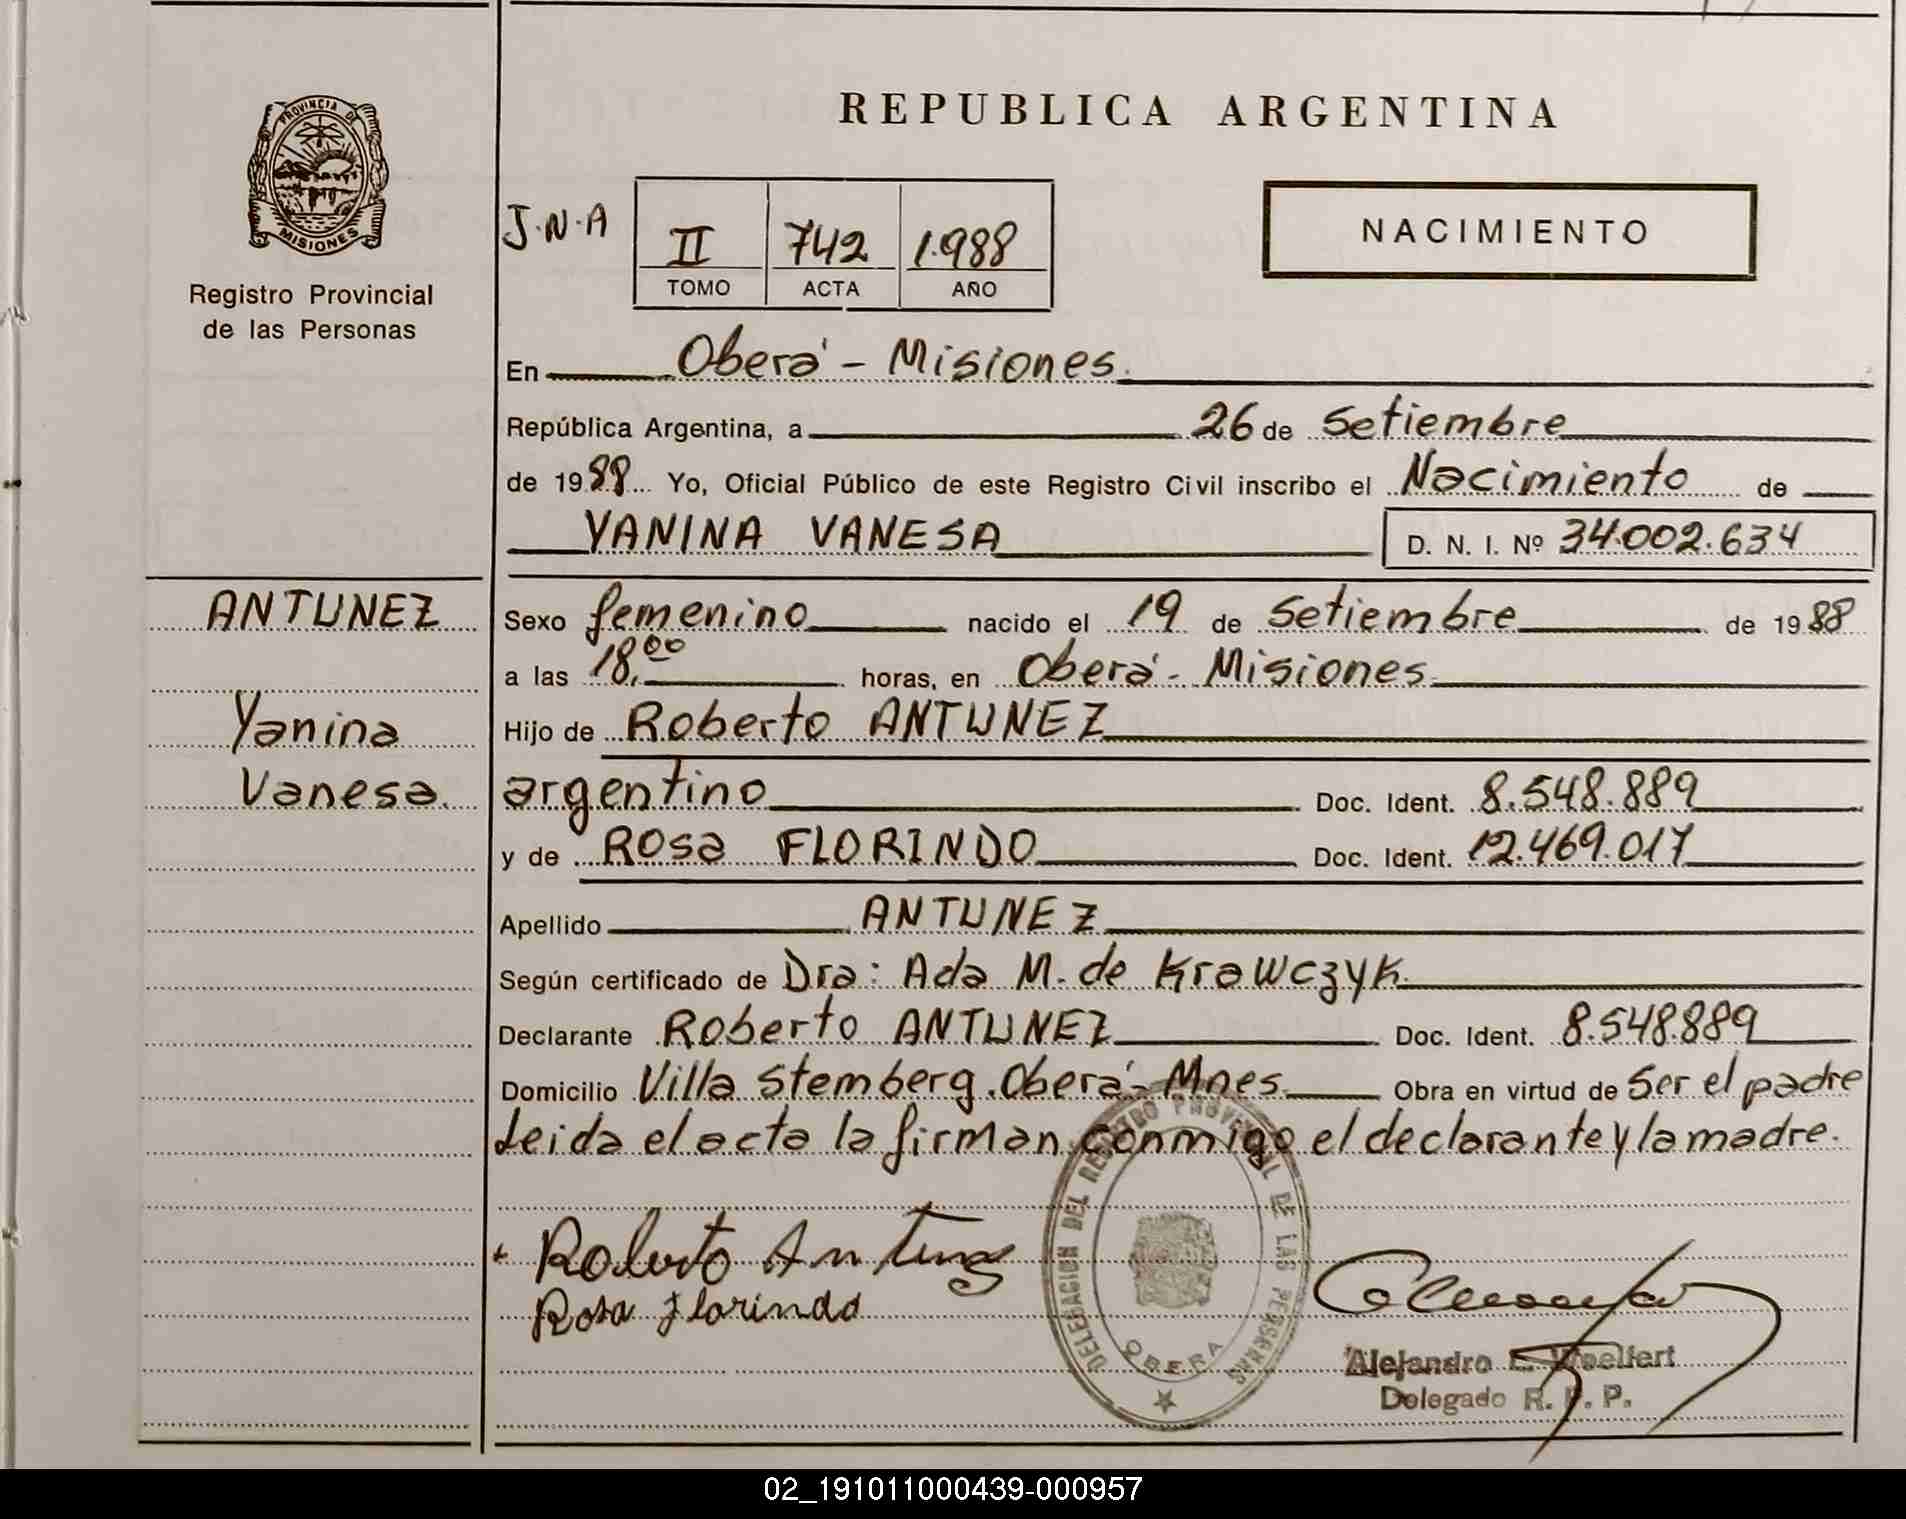 REPUBLICA ARGENTINA
PROVINCIA DE MISIONES
Registro Provincial
de las Personas
J.N.A
II 742 1.988
TOMO ACTA AÑO
NACIMIENTO
En Oberá - Misiones.
República Argentina, a 26 de Setiembre
de 1988 Yo, Oficial Público de este Registro Civil inscribo el Nacimiento de
YANINA VANESA D. N. I. Nº 34.002.634
ANTUNEZ
Yanina
Vanesa.
Sexo femenino nacido el 19 de Setiembre de 1988
a las 18,00 horas, en Oberá - Misiones.
Hijo de Roberto ANTUNEZ
argentino Doc. Ident. 8.548.889
y de Rosa FLORINDO Doc. Ident. 12.469.017
Apellido ANTUNEZ
Según certificado de Dra: Ada M. de Krawczyk.
Declarante Roberto ANTUNEZ Doc. Ident. 8.548.889
Domicilio Villa Stemberg. Oberá - Mnes. Obra en virtud de Ser el padre
Leida el acta la firman conmigo el declarante y la madre.
Roberto Antunez
Rosa Florindo
DELEGACION DEL REGISTRO PROVINCIAL DE LAS PERSONAS
OBERA
Alejandro E. Woelfert
Delegado R. P. P.
02_191011000439-000957